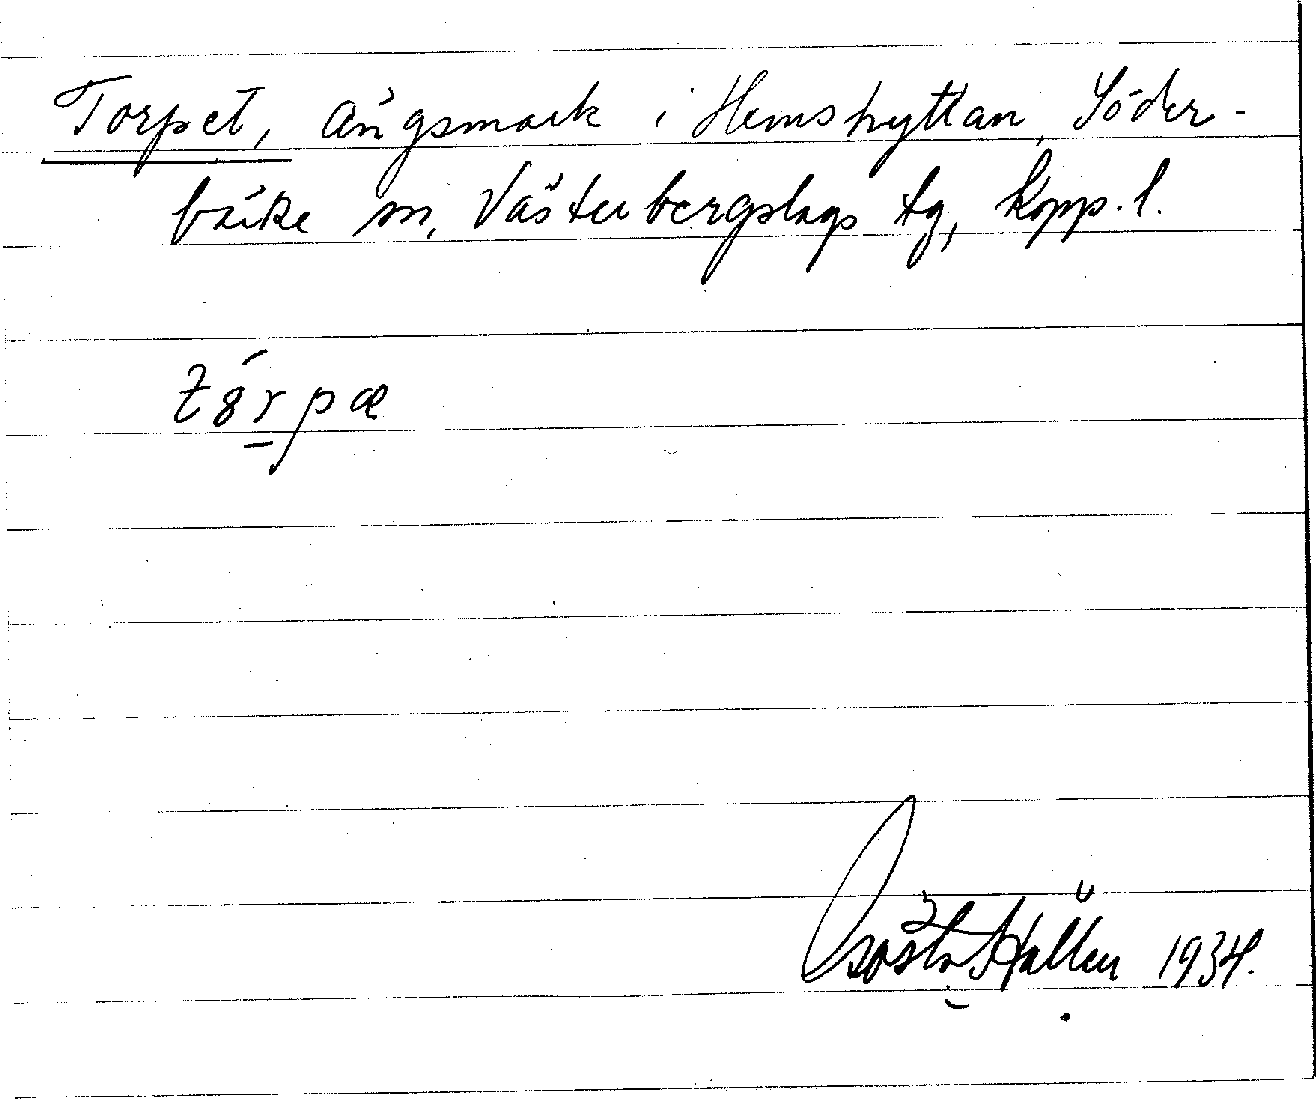 Torpet, ängsmark i Hemshyttan, Söder-
bärke sn, Västerbergslags tg, Kopp. l.
Gösta Hallen 1934.